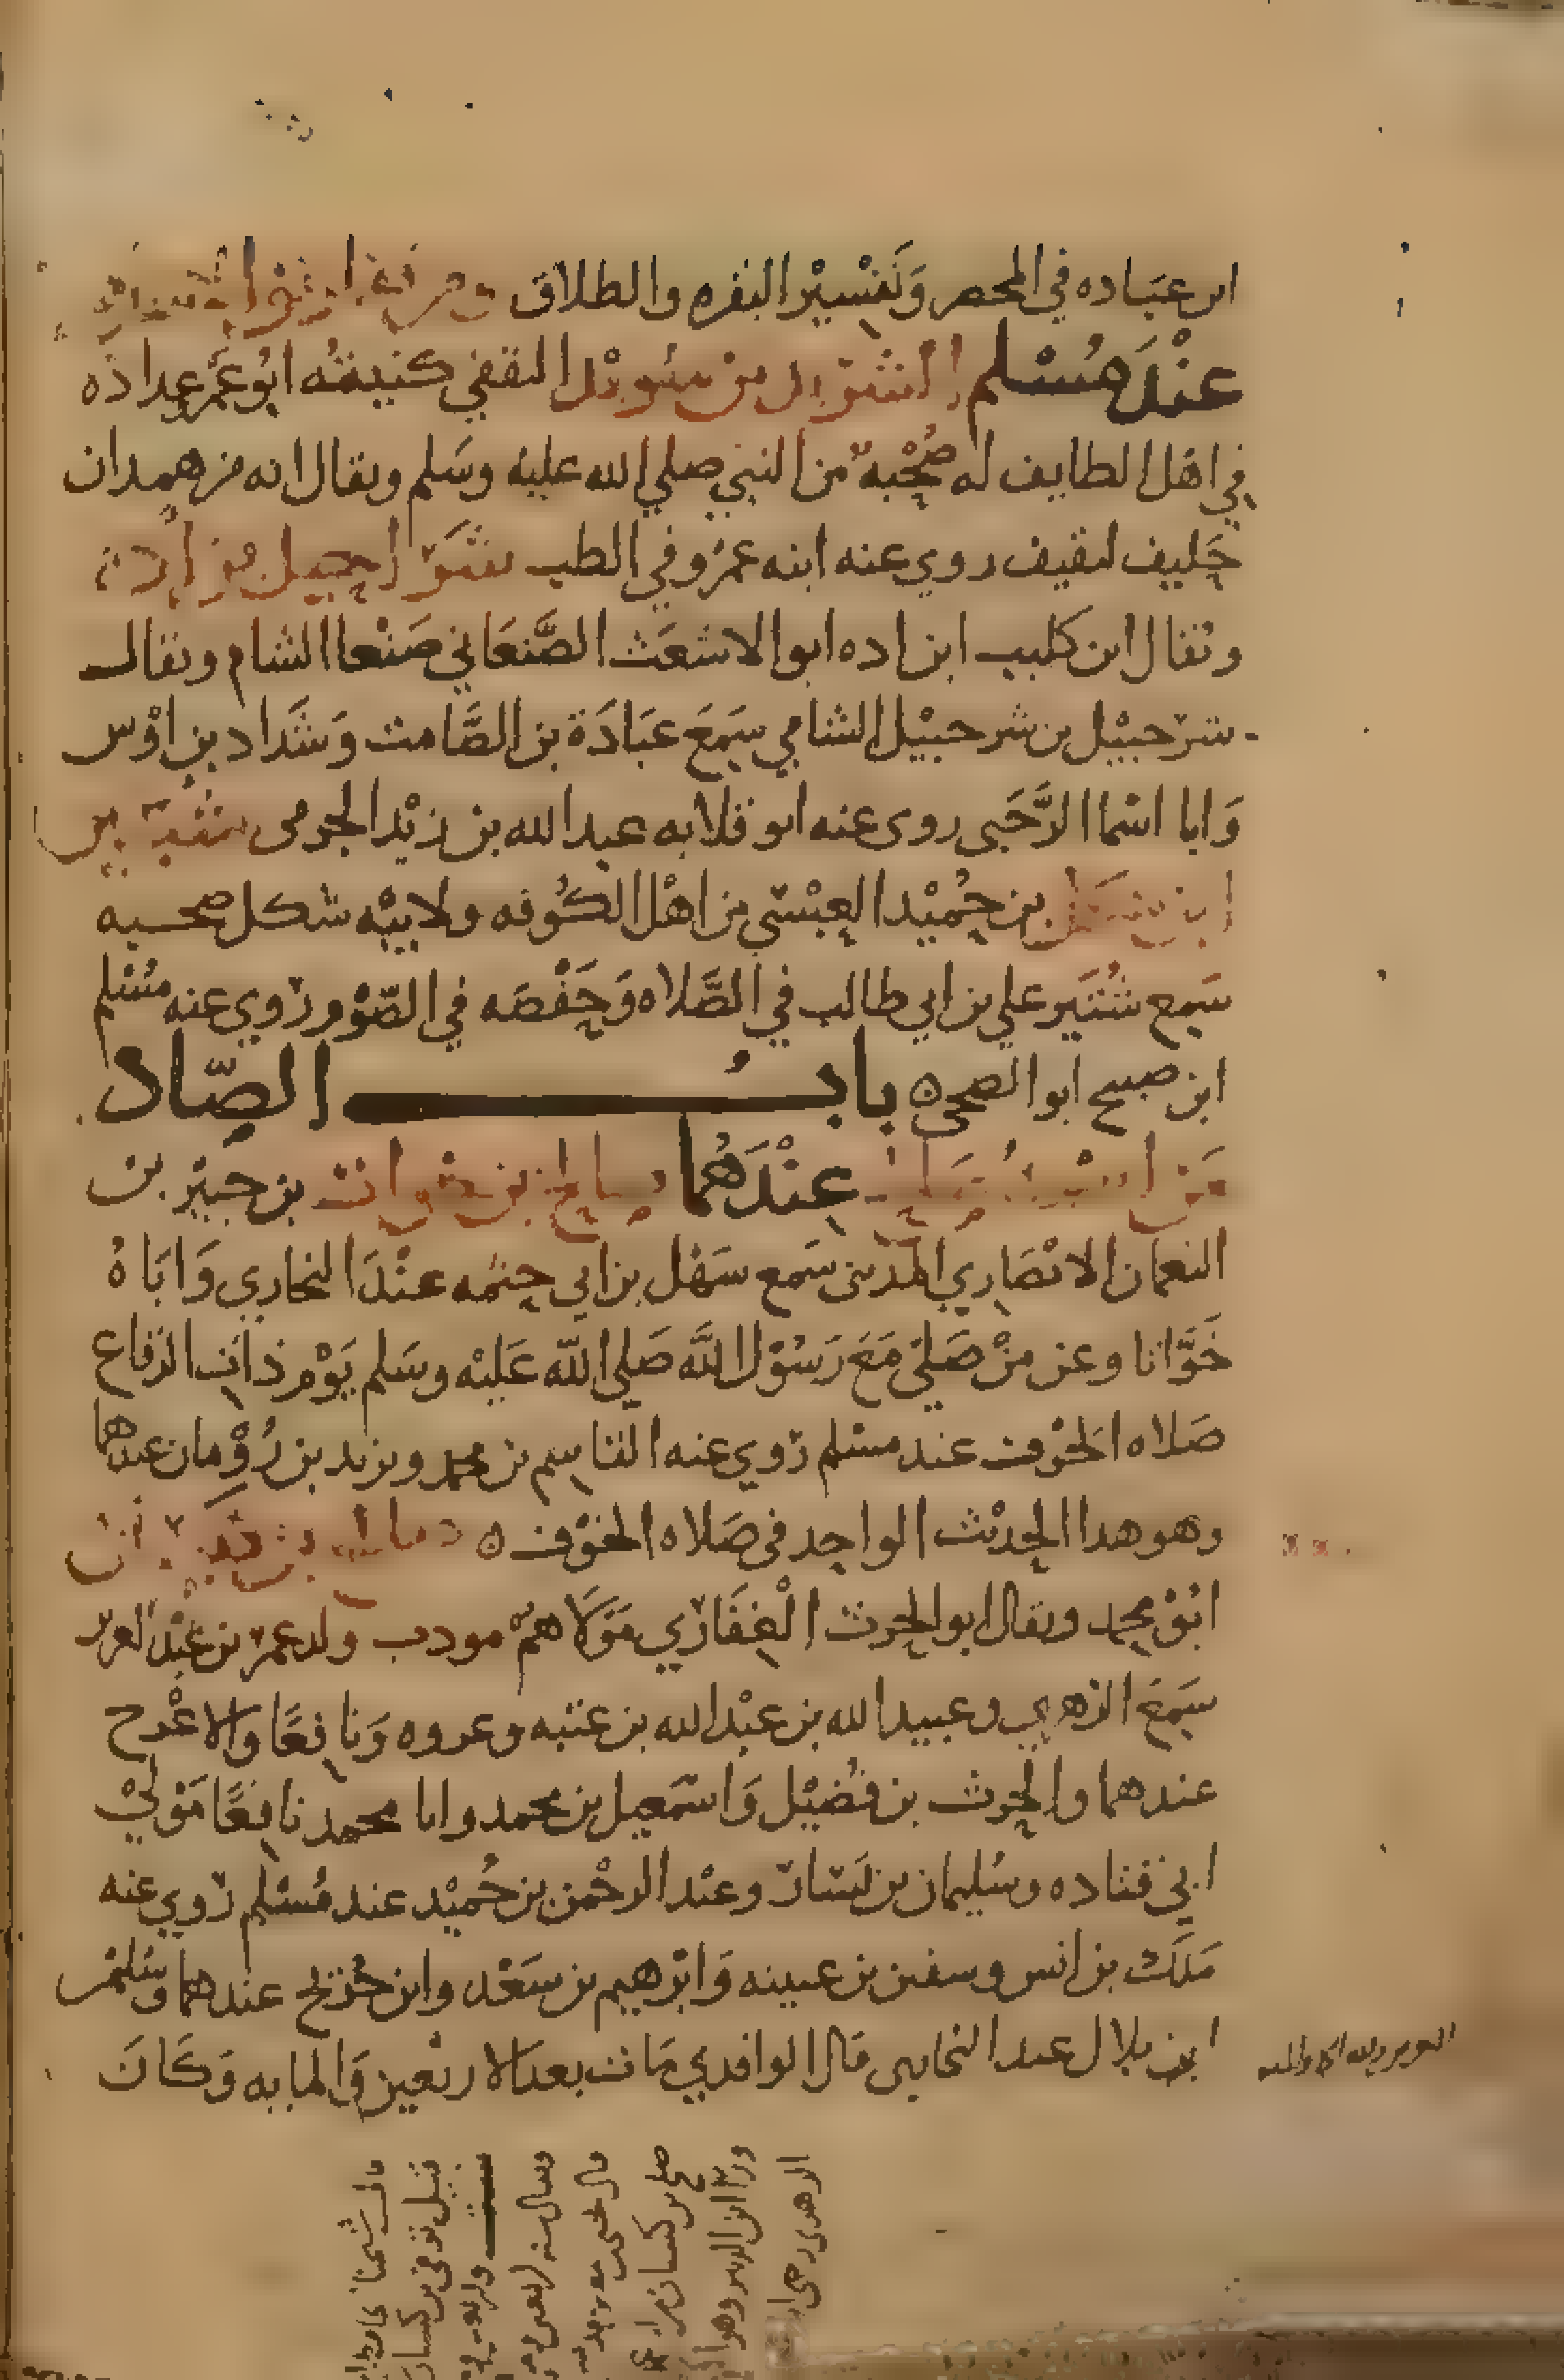 ابن عباده في المحصر وتفسير البقره والطلاق ومن افراد
عند مسلم الشريد بن سويد الثقفي كنيته ابو عمر وعداده
في اهل الطايف له صحبة من النبي صلي الله عليه وسلم ويقال انه من همدان
حليف لثقيف روي عنه ابنه عمرو في الطب شراحيل بن اده
ويقال ابن كليب ابن اده ابو الاشعث الصنعاني صنعا الشام ويقال
شرحبيل بن شرحبيل الشامي سمع عبادة بن الصامت وشداد بن اوس
وابا اسما الرحبى روى عنه ابو قلابه عبد الله بن زيد الجرمى شتير
ابن شكل بن حميد العبسي من اهل الكوفه ولابيه شكل صحبه
سمع شتير علي بن ابي طالب في الصلاه وحفصه في الصوم روي عنه مسلم
ابن صبيح ابو الضحى ه باب الصاد
من اسمه صالح عندهما صالح بن خوات بن جبير بن
النعمان الانصاري المدنى سمع سهل بن ابي حثمه عند البخاري واباه
خواتا وعن من صلي مع رسول الله صلي الله عليه وسلم يوم ذات الرقاع
صلاه الخوف عند مسلم روي عنه القاسم بن محمد ويزيد بن رومان عندهما
وهو هذا الحديث الواحد في صلاه الخوف ه صالح بن كيسان
ابو محمد ويقال ابو الحرث الغفاري مولاهم مودب ولد عمر بن عبد العزيز
سمع الزهري وعبيد الله بن عبد الله بن عتبه وعروه ونافعا والاعرج
عندهما والحرث بن فضيل واسمعيل بن محمد وابا محمد نافعا مولي
ابي قتاده وسليمان بن يسار وعبد الرحمن بن حميد عند مسلم روي عنه
ملك بن انس وسفين بن عيينه وابرهيم بن سعد وابن جريج عندهما وسليمن
ابن بلال عند البخاري قال الواقدي مات بعد الاربعين والمايه وكان